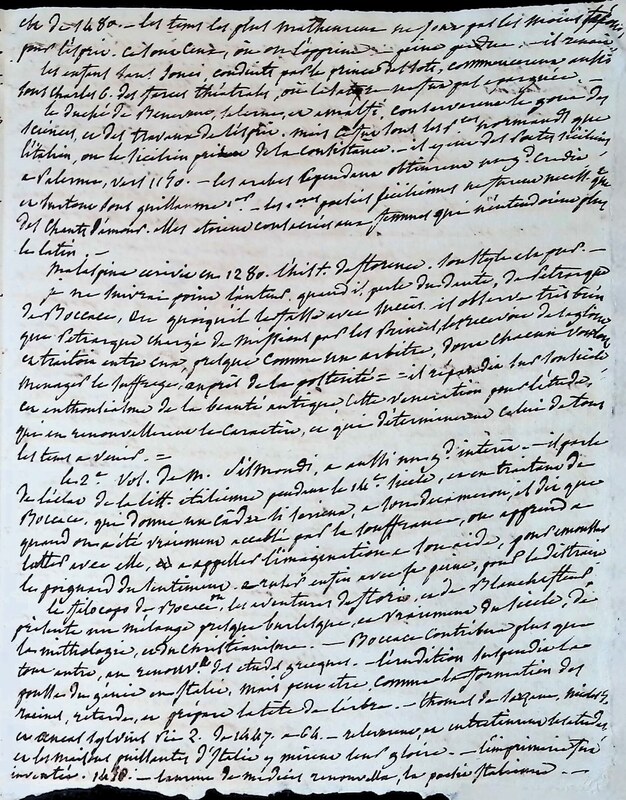 de 1480. — les tems les plus malheureux ne sont pas les moins
pour l'esprit. ce sont ceux, où on l'opprime, à peine perdre — il renait
les enfans sans souci, conduits par le prince des sots, commencerent aussi
sous Charles 6. des farces théatrales, où la ne fut pas epargnée. —
le duché de Benevent, salerne, et amalfi, conserverent le gout des
sciences, et des travaux de l'esprit. mais ce fut sous les p.ces normands que
l'italien, ou le sicilien prit de la consistance. — il y eut des Poetes siciliens
a Palerme, vers 1190. — les arabes cependant obtinrent un g.d crédit
et surtout sous guillaume 1.er — les 1.eres poesies siciliennes ne furent que
des chants d'amour. elles etoient consacrées aux femmes qui n'entendoient plus
le latin. —
malespina ecrivit en 1280. l'hist. de florence, son style est pur. —
je ne suivrai point l'auteur, quand il parle du dante, de Petrarque
de Boccace, quoiqu'il le fasse avec succès. il observe très bien
que Petrarque chargé de missions par les Princes, les recevoit de la gloire
et traitoit entre eux, presque comme un arbitre, dont chacun vouloit
menager le suffrage, auprès de la postérité = = il repandit sur son siècle
cet enthousiasme de la beauté antique cette veneration pour l'etude,
qui en renouvellerent le caractère, et que determinerent celui de tous
les tems a venir. =
le 2.e vol. de m. Sismondi, a aussi un g.d intérêt. — il parle
de l'éclat de la litt. italienne pendant le 14.e siecle, et en traitant de
Boccace, qui donne un cadre si serieux, a son decameron, il dit que
quand on a été vraiment accablé par la souffrance, on apprend a
lutter avec elle, a appeller l'imagination a son aide, pour emousser
le poignard du sentiment, a ruser enfin avec sa peine, pour la distraire
le filocopo de Boccace, les aventures de florio, et de Blanchefleur
présente un mélange presque burlesque, et vraiment du siecle, de
la mithologie, et du christianisme. — Boccace contribua plus que
tout autre, au renouv.t des etudes grecques. — l'érudition suspendit la
pousse du génie en Italie, mais peut etre, comme la formation des
racines, retarde, et prépare la tete de l'arbre. — thomas de sarzane, nicolas 5,
et aeneas sylvius Pie 2. de 1447. a 64. — releverent, et entretinrent les etudes
et les maisons puissantes d'Italie y mirent leur gloire. — l'imprimerie fut
inventée. 1450. — laurent de medicis renouvella, la poesie italienne. —